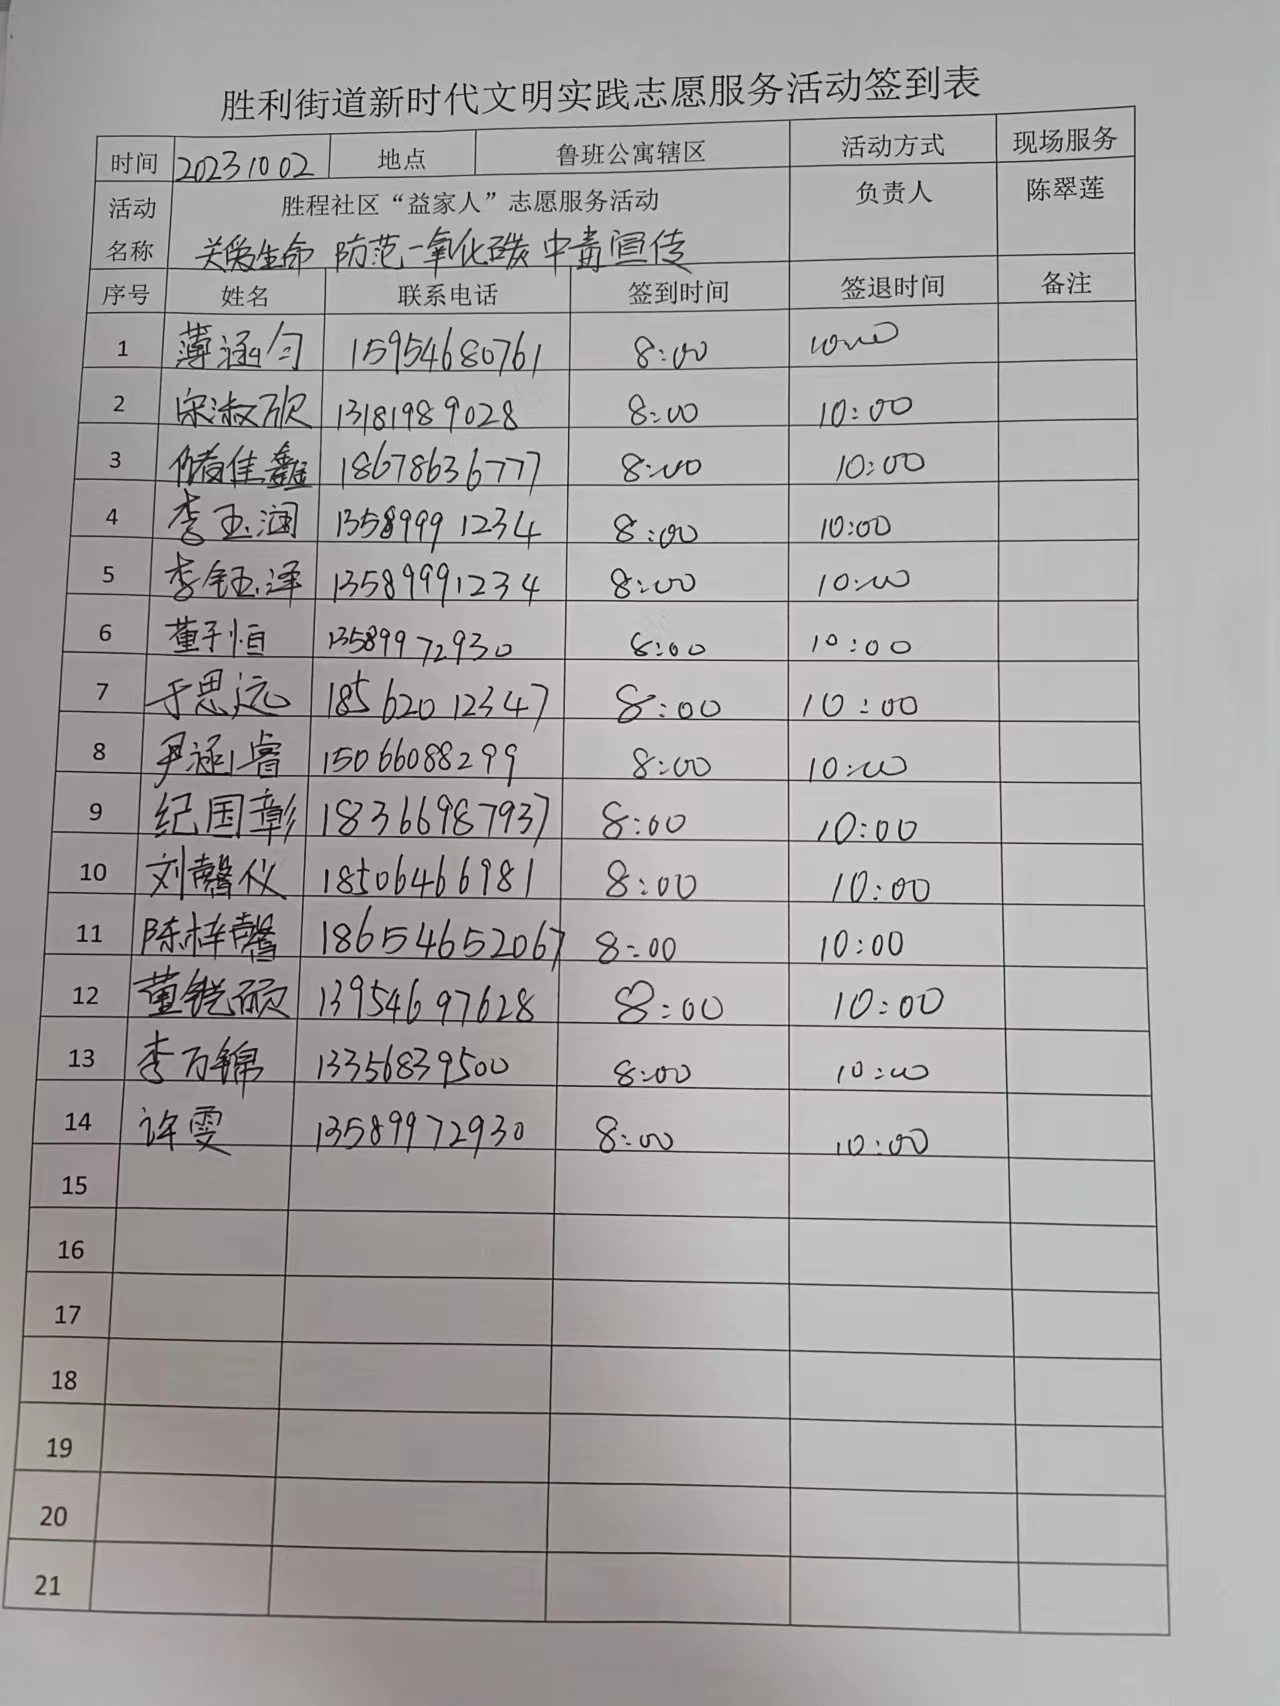 胜利街道新时代文明实践志愿服务活动签到表
时间 20231002 地点 鲁班公寓辖区 活动方式 现场服务
活动名称 胜程社区“益家人”志愿服务活动 负责人 陈翠莲
关爱生命 防范一氧化碳中毒宣传
序号 姓名 联系电话 签到时间 签退时间 备注
1 薄涵匀 15954680761 8:00 10:00
2 宋淑欣 13181989028 8:00 10:00
3 佳鑫 18678636777 8:00 10:00
4 李玉润 13589991234 8:00 10:00
5 李钰泽 13589991234 8:00 10:00
6 董子恒 13589972930 8:00 10:00
7 于思远 18562012347 8:00 10:00
8 尹涵睿 15066088299 8:00 10:00
9 纪国彰 18366987937 8:00 10:00
10 刘馨仪 18506466981 8:00 10:00
11 陈梓馨 18654652067 8:00 10:00
12 董锐硕 13954697628 8:00 10:00
13 李万锦 13356839500 8:00 10:00
14 许雯 13589972930 8:00 10:00
15
16
17
18
19
20
21